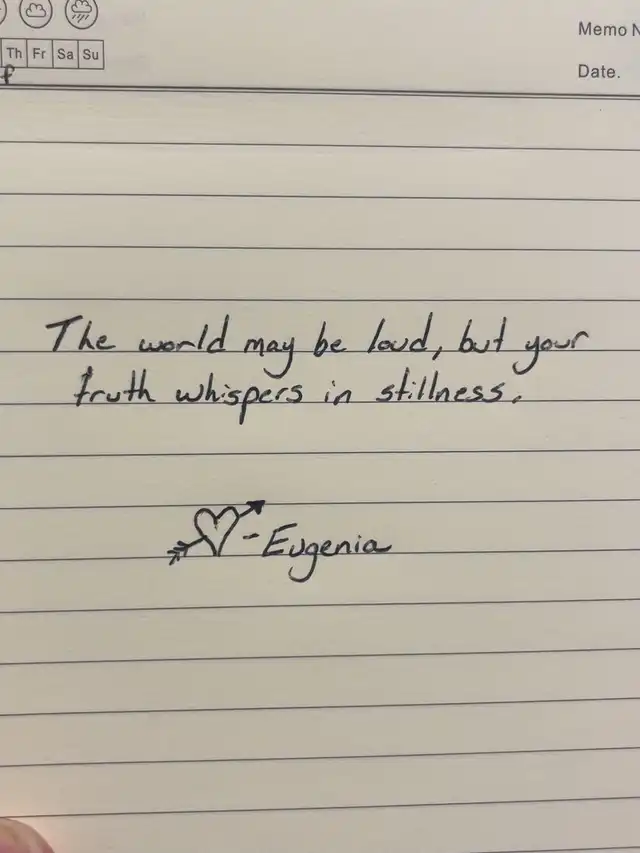 Memo N
Th Fr Sa Su
Date.
f
The world may be loud, but your
truth whispers in stillness.
-Eugenia